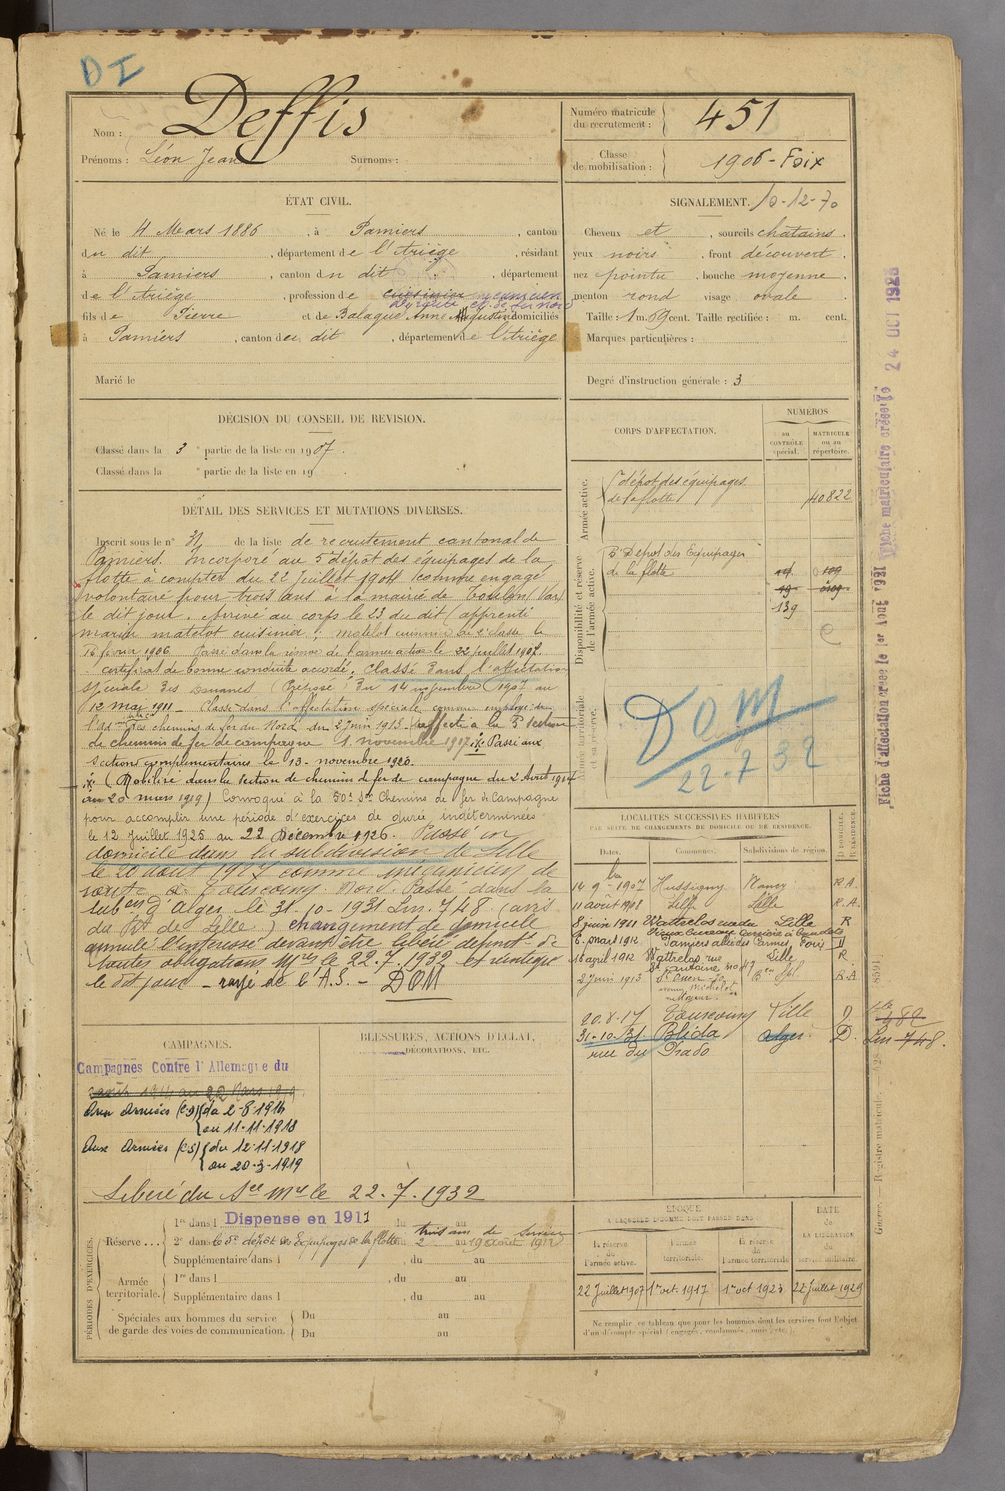 DI
Nom : Deffis
Prénoms : Léon Jean Surnoms :
Numéro matricule du recrutement : 451
Classe de mobilisation : 1906 - Foix
ÉTAT CIVIL.
Né le 4 Mars 1886 , à Pamiers , canton
du dit , département de l'Ariège , résidant
à Pamiers , canton du dit , département
de l'Ariège , profession de cuisinier mécanicien
fils de Pierre et de Balagué Anne Augustine domiciliés
à Pamiers , canton du dit , département de l'Ariège
Marié le
SIGNALEMENT. 10-12-70
Cheveux et , sourcils chatains .
yeux noirs , front découvert .
nez pointu , bouche moyenne .
menton rond visage ovale .
Taille : 1 m. 69 cent. Taille rectifiée : m. cent.
Marques particulières :
Degré d'instruction générale : 3
DÉCISION DU CONSEIL DE REVISION.
Classé dans la 3 e partie de la liste en 1907 .
Classé dans la e partie de la liste en 19
DÉTAIL DES SERVICES ET MUTATIONS DIVERSES.
Inscrit sous le n° 31 de la liste de recrutement cantonal de
Pamiers. Incorporé au 5e dépôt des équipages de la
flotte à compter du 22 juillet 1904 comme engagé
volontaire pour trois ans à la mairie de Toulon (Var)
le dit jour. Arrivé au corps le 23 du dit (apprenti
marin matelot cuisinier). Matelot cuisinier de 2e classe le
16 février 1906. Passé dans la réserve de l'armée active le 22 juillet 1907.
certificat de bonne conduite accordé. Classé dans l'affectation
spéciale des Douanes (Préposé) du 14 novembre 1907 au
12 mai 1911 - Classé dans l'affectation spéciale comme employé de
des chemins de fer du Nord du 2 juin 1913. affecté à la 5e section
de chemin de fer de campagne 1 novembre 1917 Passé aux
sections complémentaires le 13 novembre 1920.
(Mobilisé dans la section de chemin de fer de campagne du 2 Août 1914
au 20 mars 1919) Convoqué à la 50e Son Chemins de fer de Campagne
pour accomplir une période d'exercices de durée indéterminée
le 12 Juillet 1925 au 22 Décembre 1926. Passé en
domicile dans la subdivision de Lille
le 20 août 1927 comme mécanicien de
route à Tourcoing Nord. Passé dans la
subon d'Alger le 31-10-1931 Lm. 748 (avis
du Bt de Lille.) changement de domicile
annulé l'intéressé devant être libéré défint de
toutes obligations Mres le 22.7.1932 et réintégré
le dit jour - rayé de l'A.S. - DOM
CORPS D'AFFECTATION.
NUMEROS
au CONTRÔLE spécial.
MATRICULE ou au répertoire.
Armée active.
5e dépôt des équipages
de la flotte 40.822
Disponibilité et réserve de l'armée active.
5e Dépôt des Equipages
de la flotte
139
Armée territoriale et sa réserve.
DOM
22-7 32
LOCALITÉS SUCCESSIVES HABITÉES
PAR SUITE DE CHANGEMENTS DE DOMICILE OU DE RÉSIDENCE.
Dates. Communes. Subdivisions de région. D. DOMICILE. R. RÉSIDENCE.
14 9-1907 Hussigny Nancy R.A.
11 août 1908 Lille Lille R.A.
8 juin 1911 Wattrelos Lille R
6 mars 1912 Pamiers Foix D
16 avril 1912 Wattrelos rue Lille R
2 Juin 1913 St Ouen R.A
20.8.17 Tourcoing Lille D
31-10-31 Blida Alger D. Lm 748.
rue du Prado
CAMPAGNES.
Campagnes Contre l'Allemagne du
2 août 1914 au 22 Mars 1919
Aux Armées (CD) {du 2-8-1914
au 11-11-1918
Aux Armées (CS) {du 12-11-1918
au 20-3-1919
BLESSURES, ACTIONS D'ÉCLAT,
DÉCORATIONS, ETC.
Libéré du Sce Mre le 22.7.1932
PÉRIODES D'EXERCICES.
Réserve . . . 1re dans l Dispensé en 1911 du au
trois ans de service
2e dans le 5e dépôt des Equipages de la flotte 2 au 19 août 1912
Supplémentaire dans l , du au
Armée territoriale. 1re dans l , du au
Supplémentaire dans l , du au
Spéciales aux hommes du service de garde des voies de communication. Du au
Du au
ÉPOQUE
À LAQUELLE L'HOMME DOIT PASSER DANS
la réserve de l'armée active.
l'armée territoriale.
la réserve de l'armée territoriale
DATE de LA LIBÉRATION du service militaire.
22 Juillet 1907 1er oct. 1917 1er oct 1923 22 Juillet 1929
Ne remplir ce tableau que pour les hommes dont les services font l'objet
d'un décompte spécial (engagés, condamnés, omis, etc.).
Fiche d'affectation créée le 1er Août 1921 Fiche matriculaire créée le 24 OCT 1928
Guerre. — Registre matricule.